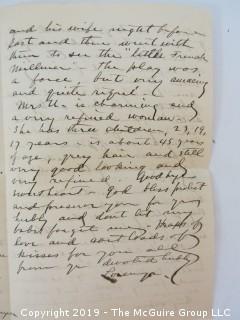 and his wife night before
last and then went with
them to see the "little French
Milliner" - the play was
a farce, but very amusing
and quite risqué -
Mrs. is charming and
a very refined woman -
She has three children, 23, 19,
17 years - is about 45 years
of age, grey hair and still
very good looking and
very refined - Goodbye
sweetheart - God bless
and preserve you for your
hubby and don't let my
babes forget me - Heaps of
love and cart loads of
kisses for you all
from yr devoted hubby
Lorenzo
Copyright 2019 - The McGuire Group LLC